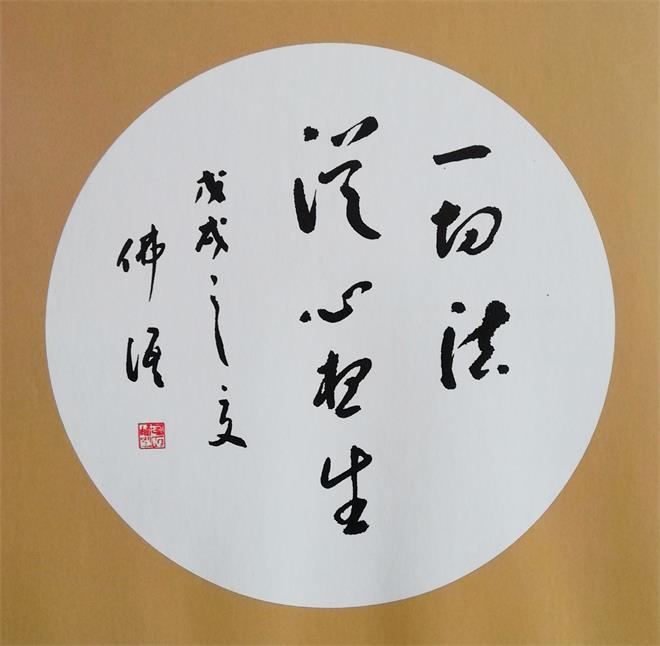 一切法
從心想生
戊戌之夏
佛